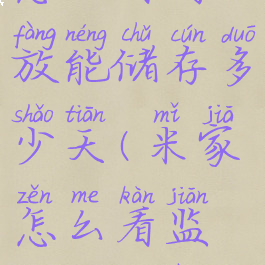 fàng néng chǔ cún duō
放能储存多
shǎo tiān mǐ jiā
少天(米家
zěn me kàn jiān
怎么看监